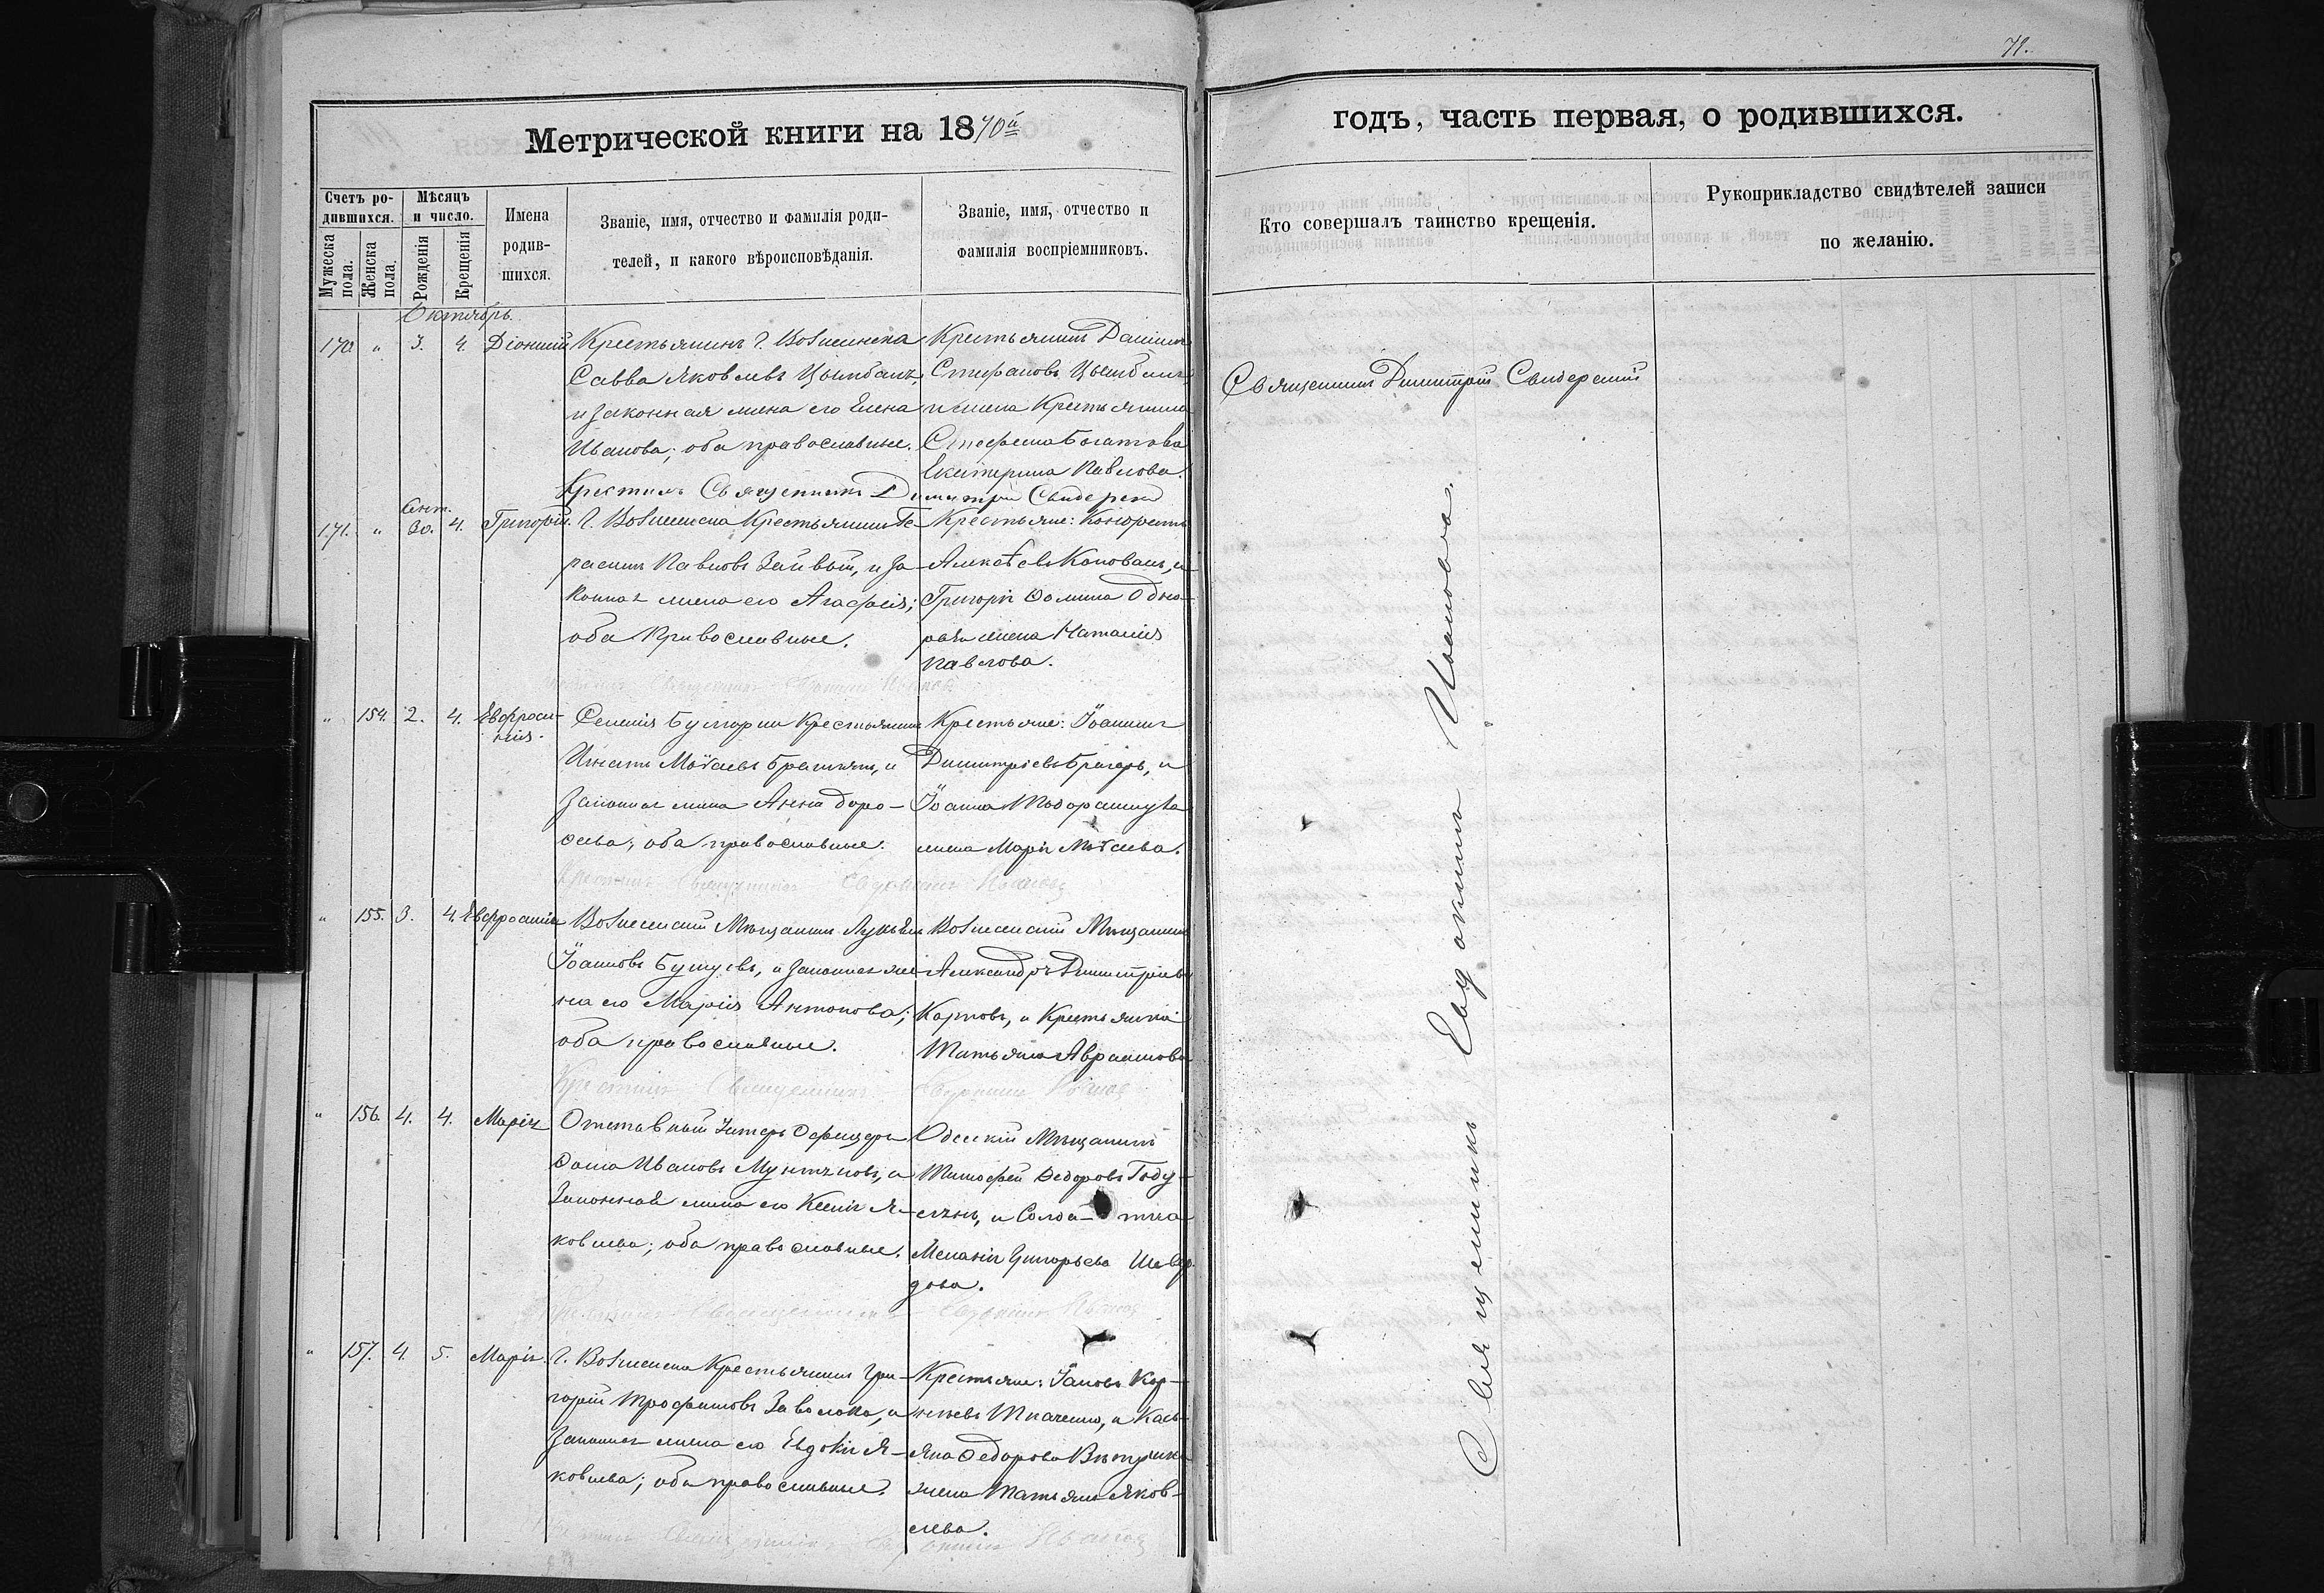 71.
Метрической книги на 1870й
годъ, часть первая, о родившихся.
Счетъ ро-
дившихся.
Мужеска
пола.
Женска
пола.
Мѣсяцъ
и число.
Рожденія
Крещенія
Имена
родив-
шихся.
Званіе, имя, отчество и фамилія роди-
телей, и какого вѣроисповѣданія.
Званіе, имя, отчество и
фамилія воспріемниковъ.
Кто совершалъ таинство крещенія.
Рукоприкладство свидѣтелей записи
по желанію.
Октябрь.
170 " 3. 4. Діонисій
Крестьянинъ г. Вознесенска
Савва Яковлевъ Цымбалъ,
и законная жена его Елена
Иванова; оба православные.
Крестьянинъ Даніилъ
Стефановъ Цымбалъ,
и жена Крестьянина
Стефана Богатова
Екатерина Павлова.
Крестилъ Священникъ Димитрій Свидерскій
Священникъ Димитрій Свидерскій
171. " Сент. 30. 4. Григорій.
г. Вознесенска Крестьянинъ Ге-
расимъ Павловъ Заивый, и за-
конная жена его Агафія;
оба Православные.
Крестьяне: Кондратъ
Алексѣевъ Коновалъ, и
Григорія Фомина Одно-
жена Наталія
Павлова.
" 154. 2. 4. Евфроси-
нія.
Селенія Булгарки Крестьянинъ
Игнатъ Моѵсеевъ и
законная жена Анна
оба православные.
Крестьяне: Іоаннъ
Димитріевъ и
Іоанна
жена Марія Моѵсеева.
Крестилъ Священникъ Евдокимъ Иванов
" 155. 3. 4. Евфросинія
Вознесенскій Мѣщанинъ Лукьянъ
Іоанновъ и законная же-
на его Марія Антонова;
оба православные.
Вознесенскій Мѣщанинъ
Александръ Димитріевъ
Карповъ, и Крестьянка
Татьяна Авраамова
Крестилъ Священникъ Евдокимъ Иванов
" 156. 4. 4. Марія
Отставный Унтеръ Офицеръ
Фома Ивановъ и
Законная жена его Ксенія Я-
ковлева; оба православные.
Одесскій Мѣщанинъ
Тимофей Федоровъ
и Солдатка
Меланія Григорьева
Священникъ Евдокимъ Иванов
" 157. 4. 5. Марія.
г. Вознесенска Крестьянинъ Гри-
горій Трофимовъ Заволока, и
законная жена его Евдокія Я-
ковлева; оба православные.
Крестьяне: Іаковъ Кор-
нѣевъ Ткаченко, и Кась-
яна Федорова
жена Татьяна Яков-
лева.
Священникъ Евдокимъ Иванов
Священникъ Евдокимъ Ивановъ.